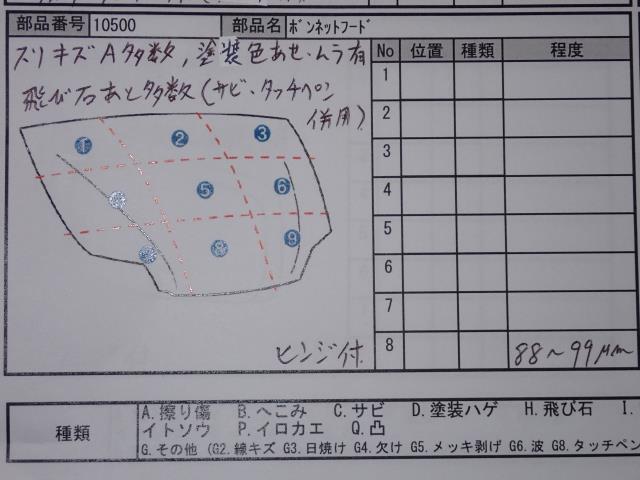 部品番号 10500 部品名 ボンネットフード
スリキズA多数，塗装色あせ・ムラ有
飛び石あと多数(サビ・タッチペン
併用)
No 位置 種類 程度
1
2
3
4
5
6
7
8 88～99μm
① ② ③
④ ⑤ ⑥
⑦ ⑧ ⑨
ヒンジ付
種類
A.擦り傷 B.へこみ C.サビ D.塗装ハゲ H.飛び石 I.
イトソウ P.イロカエ Q.凸
G.その他 (G2.線キズ G3.日焼け G4.欠け G5.メッキ剥げ G6.波 G8.タッチペン